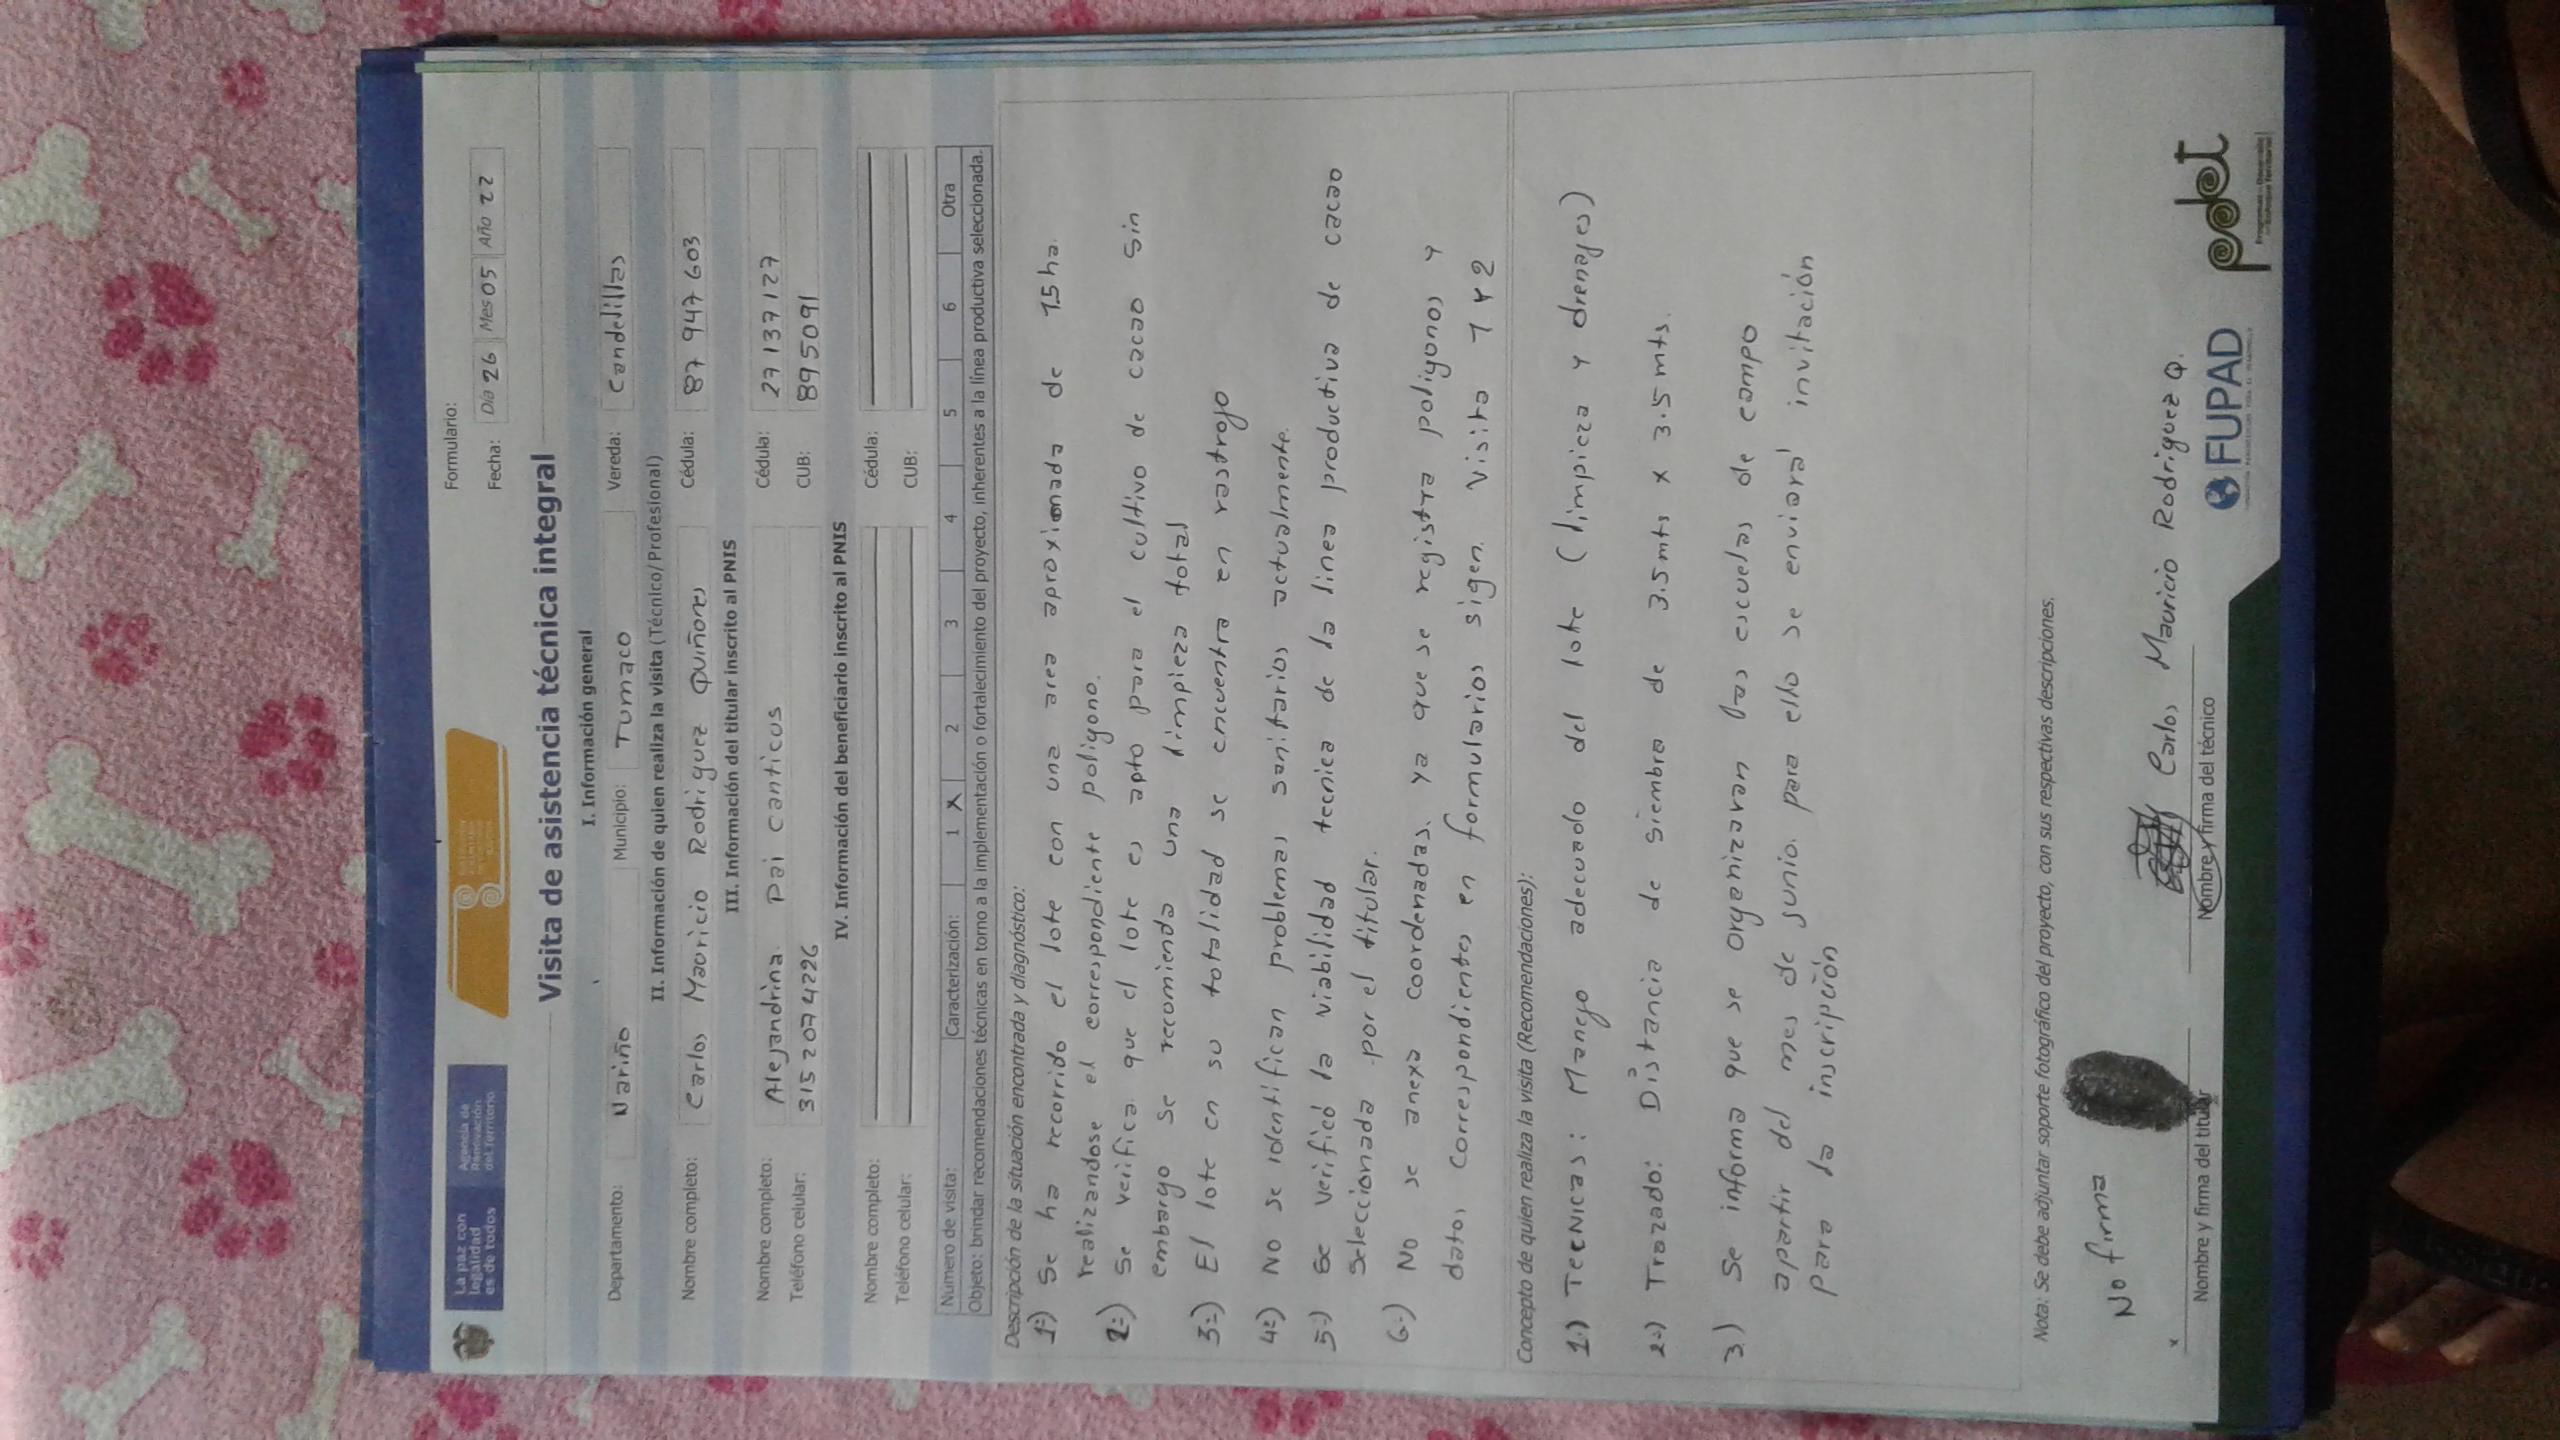 La paz con
legalidad
es de todos
Agencia de
Renovación
del Territorio
Formulario:
Fecha: Día 26 Mes 05 Año 22
Visita de asistencia técnica integral
I. Información general
Departamento: Nariño Municipio: Tumaco Vereda: Candelillas
II. Información de quien realiza la visita (Técnico/Profesional)
Nombre completo: Carlos Mauricio Rodriguez Quiñones Cédula: 87 947 603
III. Información del titular inscrito al PNIS
Nombre completo: Alejandrina Pai Canticus Cédula: 27 137 127
Teléfono celular: 315 207 4226 CUB: 895091
IV. Información del beneficiario inscrito al PNIS
Nombre completo: Cédula:
Teléfono celular: CUB:
Número de visita: Caracterización: 1 X 2 3 4 5 6 Otra
Objeto: brindar recomendaciones técnicas en torno a la implementación o fortalecimiento del proyecto, inherentes a la línea productiva seleccionada.
Descripción de la situación encontrada y diagnóstico:
1.) Se ha recorrido el lote con una area aproximada de 1.5 ha.
realizandose el correspondiente poligono.
2.) Se verifica que el lote es apto para el cultivo de cacao sin
embargo se recomienda una limpieza total
3.) El lote en su totalidad se encuentra en rastrojo
4.) No se identifican problemas sanitarios actualmente.
5.) Se verificó la viabilidad tecnica de la linea productiva de cacao
seleccionada por el titular.
6.) No se anexa coordenadas, ya que se registra poligonos y
datos correspondientes en formularios sigen. Visita 1 y 2
Concepto de quien realiza la visita (Recomendaciones):
1.) Tecnicas: Manejo adecuado del lote (limpieza y drenajes)
2.) Trazado: Distancia de siembra de 3.5 mts x 3.5 mts.
3.) Se informa que se organizaran las escuelas de campo
apartir del mes de junio. para ello se enviará invitación
para la inscripción
Nota: Se debe adjuntar soporte fotográfico del proyecto, con sus respectivas descripciones.
No firma
Carlos Mauricio Rodriguez Q.
x
Nombre y firma del titular
Nombre y firma del técnico
FUPAD
pdet